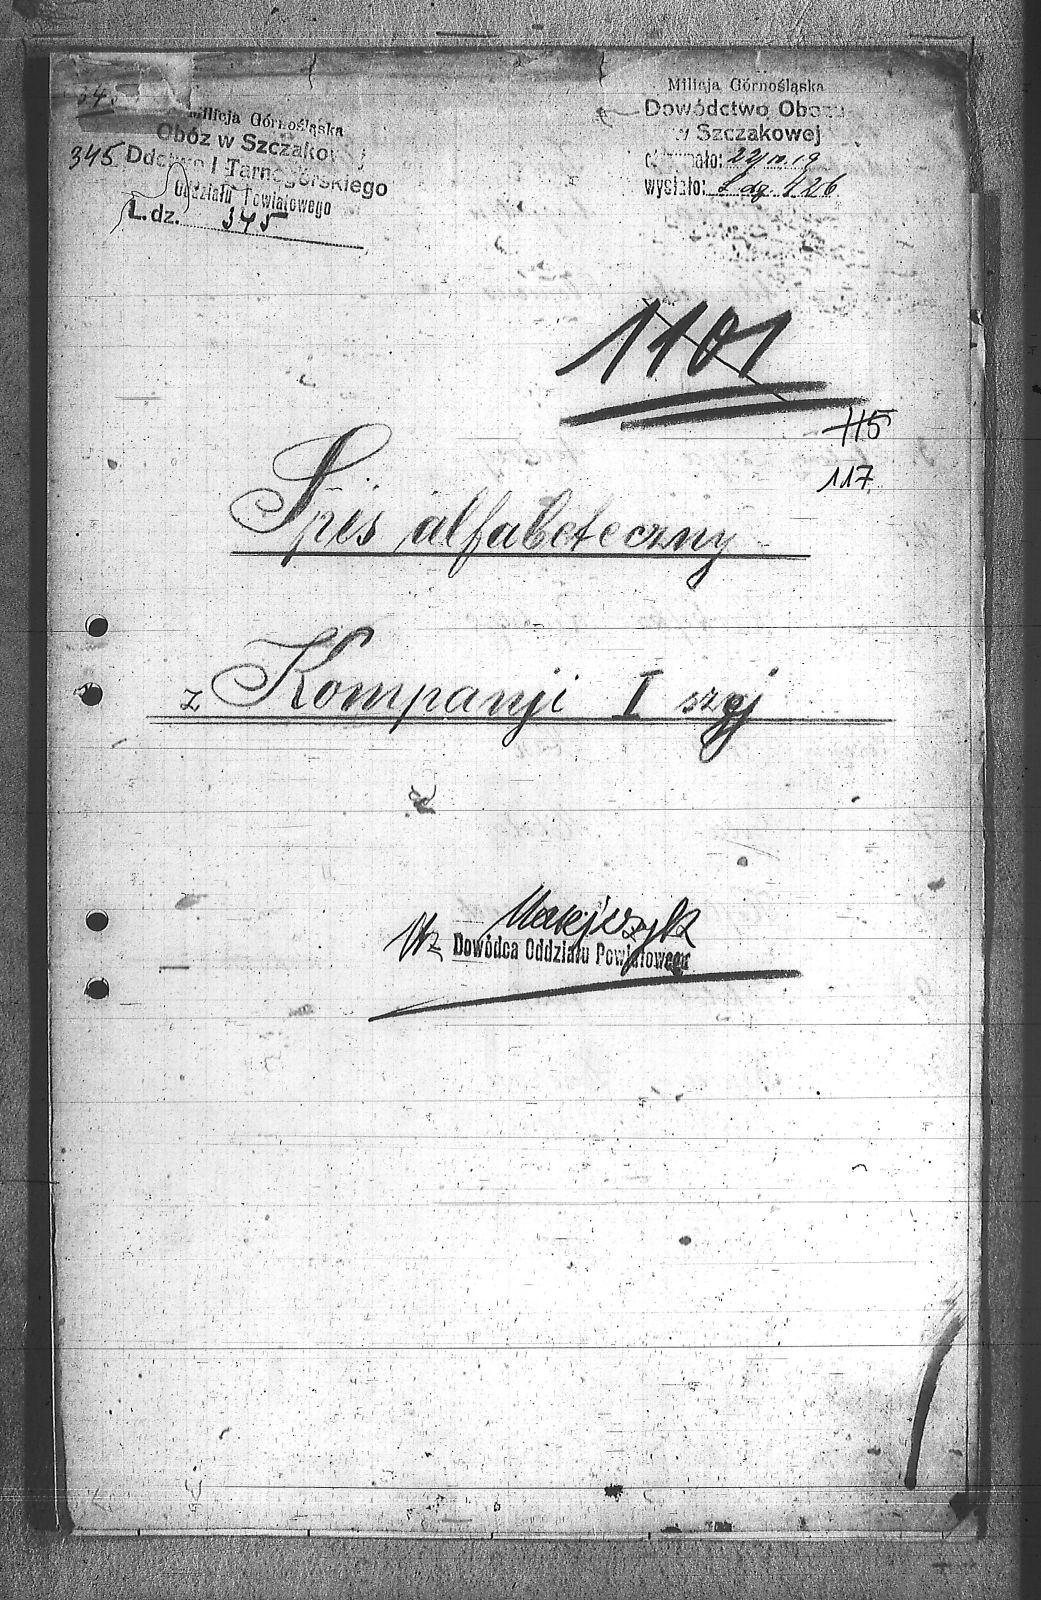 345
Milicja Górnośląska
Obóz w Szczakowej
Ddctwo I Tarnogórskiego
Oddziału Powiatowego
L. dz. 345
345
Milicja Górnośląska
Dowództwo Obozu
w Szczakowej
otrzymało: 22/10.19
wysłało: L. dz. 426
1101
115
117.
Spis alfabeteczny
z Kompanji I szej
Wz Matejczyk
Dowódca Oddziału Powiatowego